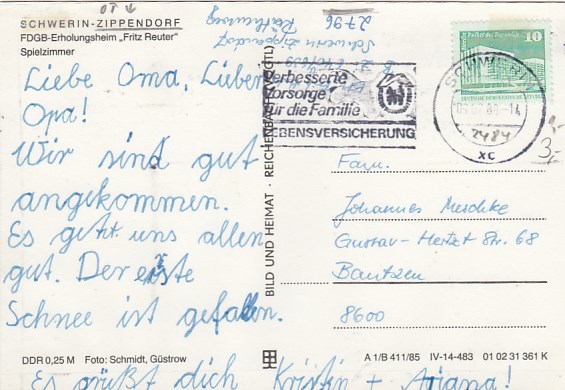 OT ↓
SCHWERIN-ZIPPENDORF
FDGB-Erholungsheim „Fritz Reuter"
Spielzimmer
Liebe Oma, Lieber
Opa!
Wir sind gut
angekommen.
Es geht uns allen
gut. Der erste
Schnee ist gefallen.
Es grüßt dich Kristin + Ariana!
2796
Schwerin Zippendorf
BILD UND HEIMAT · REICHENBACH (VOGTL)
Verbesserte
Vorsorge
für die Familie
LEBENSVERSICHERUNG
10
SCHWERIN
2484
xc
3,-
Fam.
Johannes Meschke
Gustav-Hertzt Str. 68
Bautzen
8600
DDR 0,25 M Foto: Schmidt, Güstrow
A 1/B 411/85 IV-14-483 01 02 31 361 K